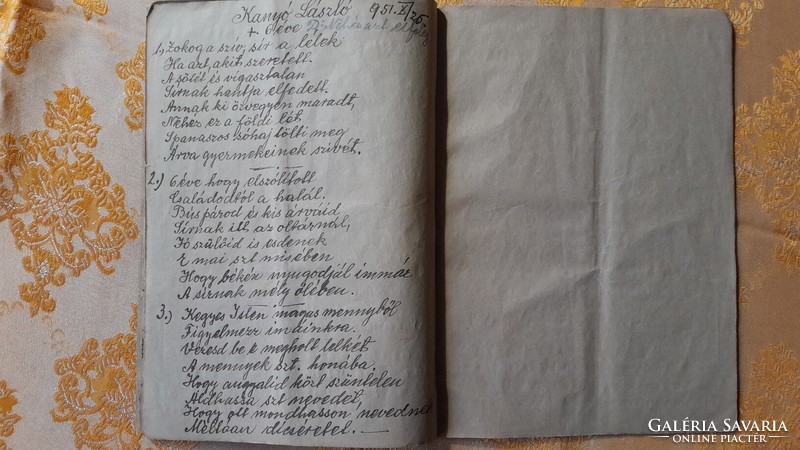 Kanyó László 951.X/25.
+ 6 éve
1, Zokog a szív, sír a lélek
Ha azt, akit szeretett.
A sötét és vigasztalan
Sírnak hantja elfedett.
Annak ki özvegyen maradt,
Nehéz ez a földi lét.
S panaszos sóhaj tölti meg
Árva gyermekeinek szívét.
2.) 6 éve hogy elszólított
Családodtól a halál.
Bús párod és kis árváid,
Sírnak itt az oltárnál,
Jó szülőid is esdenek
E mai szt misében
Hogy békén nyugodjál immár
A sírnak mély ölében.
3.) Kegyes Isten magas mennyből
Figyelmezz imáinkra.
Vezesd be e megholt lelkét
A mennyek szt. honába.
Hogy angyalid közt szüntelen
Áldhassa szt nevedet,
Hogy ott mondhasson nevednek
Méltóan dicséretet. —
GALÉRIA SAVARIA
ONLINE PIACTÉR